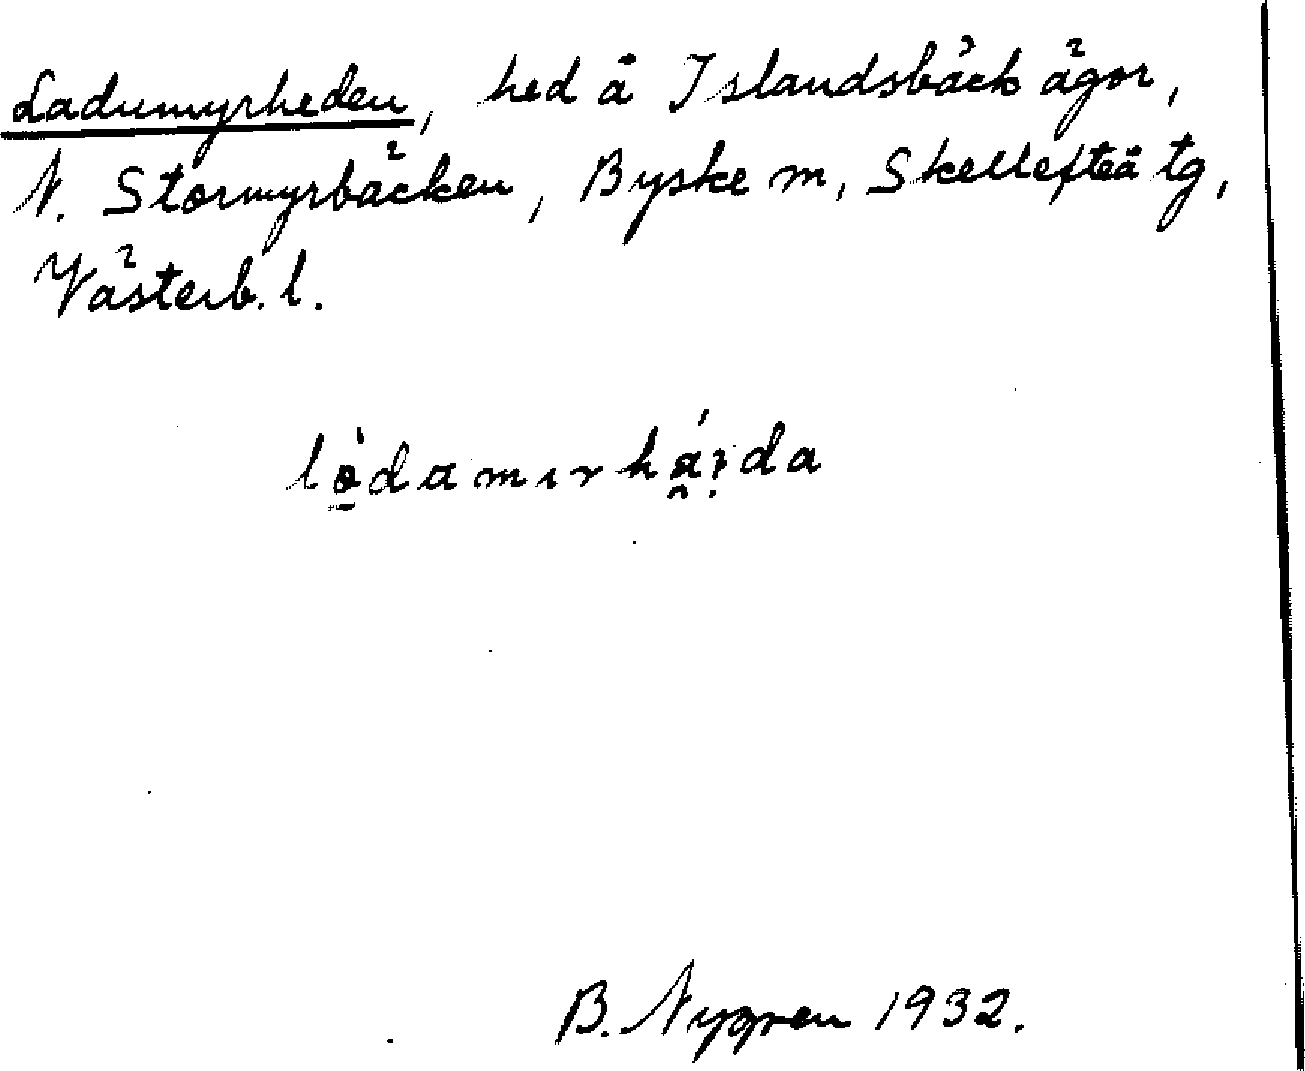 Ladumyrheden, hed å Islandsbäck ägor,
N. Stormyrbäcken, Byske m, Skellefteå tg,
Västerb. l.
B. Nygren 1932.